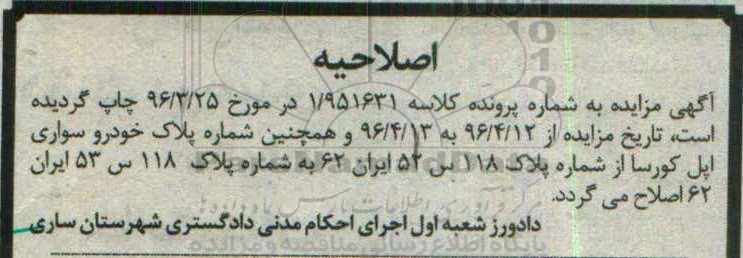 اصلاحیه
آگهی مزایده به شماره پرونده کلاسه ۱/۹۵۱۶۳۱ در مورخ ۹۶/۳/۲۵ چاپ گردیده
است، تاریخ مزایده از ۹۶/۴/۱۲ به ۹۶/۴/۱۳ و همچنین شماره پلاک خودرو سواری
اپل کورسا از شماره پلاک ۱۱۸ س ۵۲ ایران ۶۲ به شماره پلاک ۱۱۸ س ۵۳ ایران
۶۲ اصلاح می گردد.
دادورز شعبه اول اجرای احکام مدنی دادگستری شهرستان ساری
پایگاه اطلاع رسانی مناقصه و مزایده